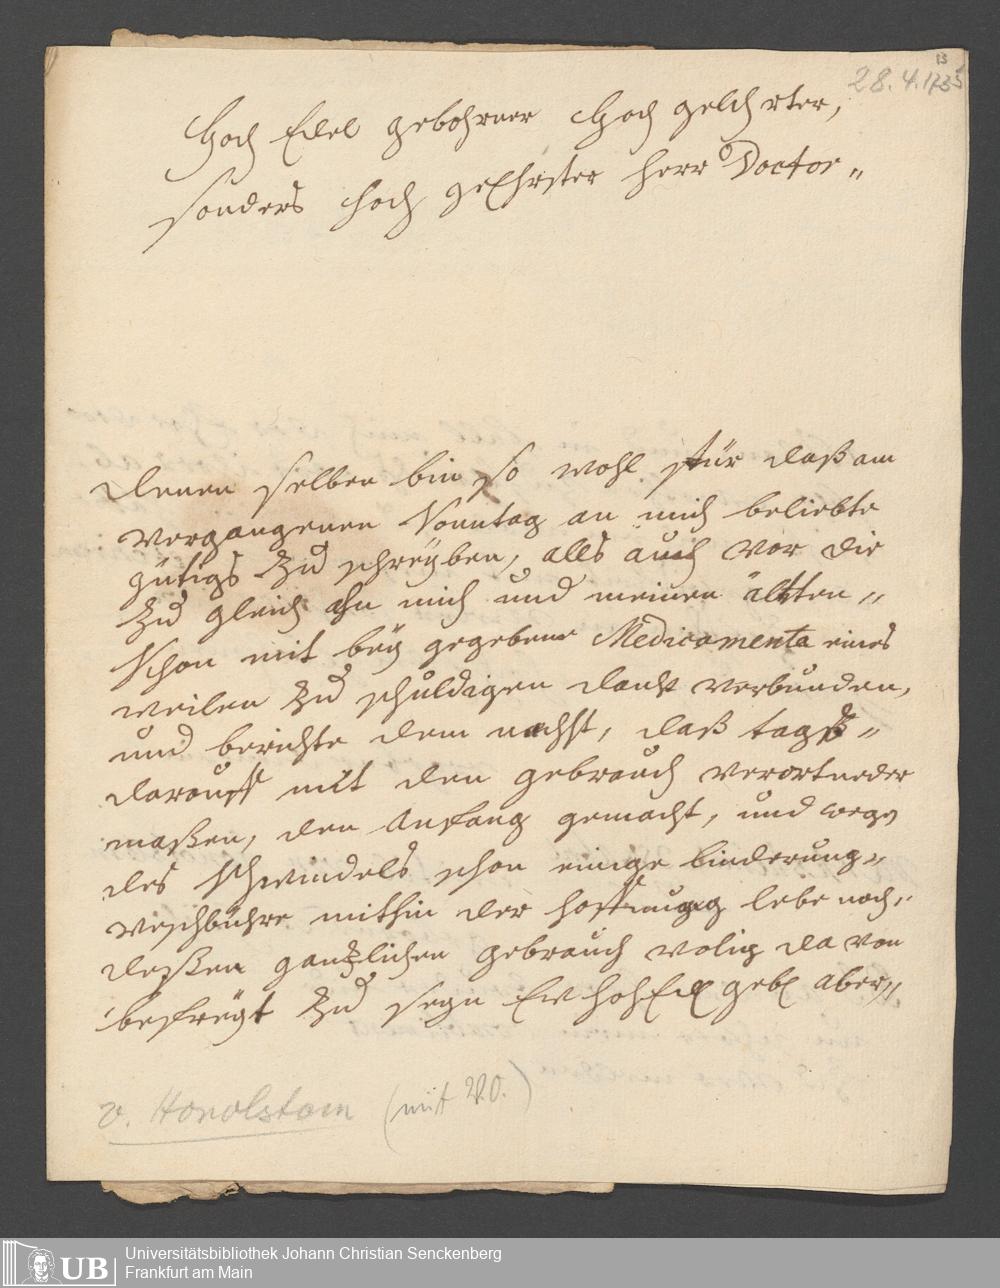 28.4.1735
13
Hoch Edel gebohrner Hoch gelehrter,
sonders hoch geEhrster Herr Doctor„
denen selben bin so wohl für daß am
vergangenen Sonntag an mich beliebte
gütigs zu schreÿben, alls auch vor die
zu gleich ahn mich und meinen ältten„
Schon mit beÿ gegebene Medicamenta eines
weilen zu schuldigen danck verbunden,
und berichte dem nachst, daß tagß„
darauff mit den gebrauch verortneder
maßen, den Anfang gemacht, und wegen
des schwindels schon einige linderung„
verschbühre mithin der hoffnung lebe noch„
deßen gantzlichen gebrauch volig da von
befreÿt zu seyn Ew hohEdl gebl aber„
v. Honolstom (mit 220.)
UB
Universitätsbibliothek Johann Christian Senckenberg
Frankfurt am Main